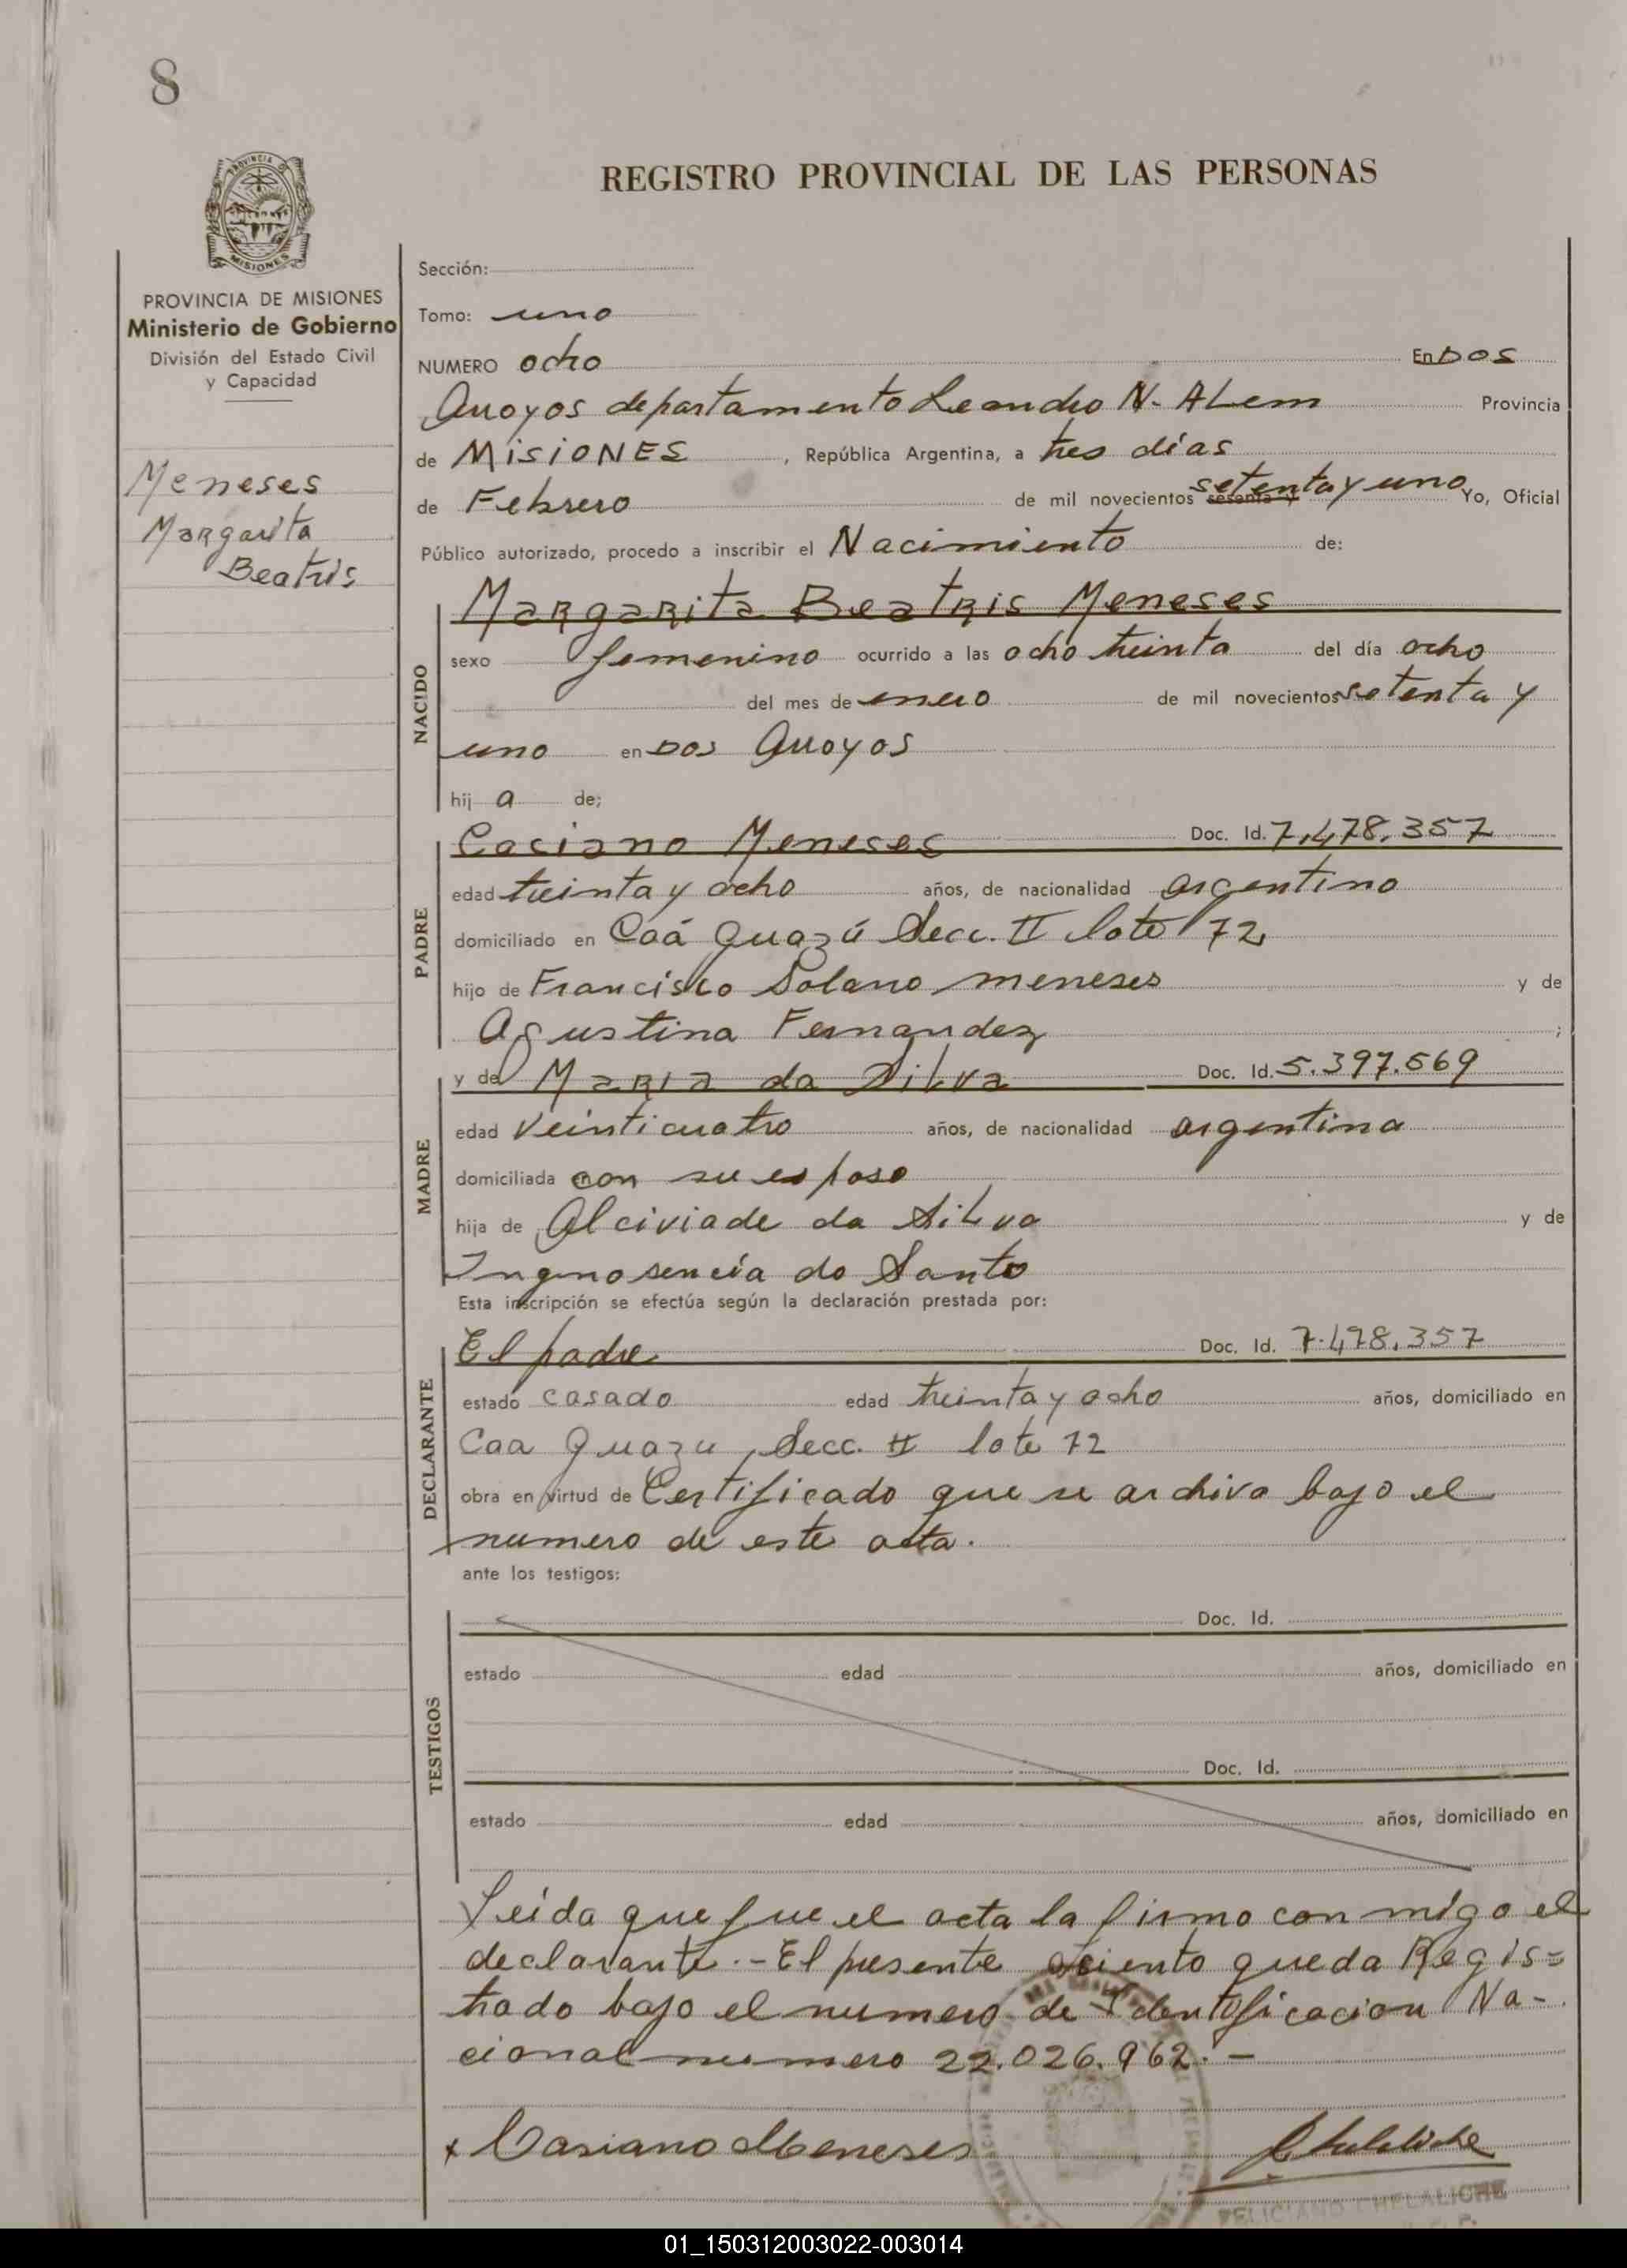 8
PROVINCIA DE
MISIONES
REGISTRO PROVINCIAL DE LAS PERSONAS
PROVINCIA DE MISIONES
Ministerio de Gobierno
División del Estado Civil
y Capacidad
Meneses
Margarita
Beatris
Sección:
Tomo: uno
NUMERO ocho En DOS
Arroyos departamento Leandro N. ALem Provincia
de MISIONES , República Argentina, a tres días
de Febrero de mil novecientos sesenta y setenta y uno Yo, Oficial
Público autorizado, procedo a inscribir el Nacimiento de:
NACIDO
Margarita Beatris Meneses
sexo femenino ocurrido a las ocho treinta del día ocho
del mes de enero de mil novecientos setenta y
uno en DOS Arroyos
hij a de;
PADRE
Casiano Meneses Doc. Id. 7.478.357
edad treinta y ocho años, de nacionalidad argentino
domiciliado en Caá Guazú Secc. II lote 72
hijo de Francisco Solano meneses y de
Agustina Fernandez ;
MADRE
y de Maria da Silva Doc. Id. 5.397.569
edad veinticuatro años, de nacionalidad argentina
domiciliada con su esposo
hija de Alciviade da Silva y de
Ingnosencia do Santo
Esta inscripción se efectúa según la declaración prestada por:
DECLARANTE
El padre Doc. Id. 7.478.357
estado casado edad treinta y ocho años, domiciliado en
Caa Guazu, Secc. II lote 72
obra en virtud de Certificado que se archiva bajo el
numero de este acta.
ante los testigos:
TESTIGOS
Doc. Id.
estado edad años, domiciliado en
Doc. Id.
estado edad años, domiciliado en
Leída que fue el acta la firmo conmigo el
declarante.- El presente asiento queda Regis=
trado bajo el numero de Identificacion Na-
cional numero 22.026.962.-
x Casiano Meneses Chelaliche
FELICIANO CHELALICHE
01_150312003022-003014